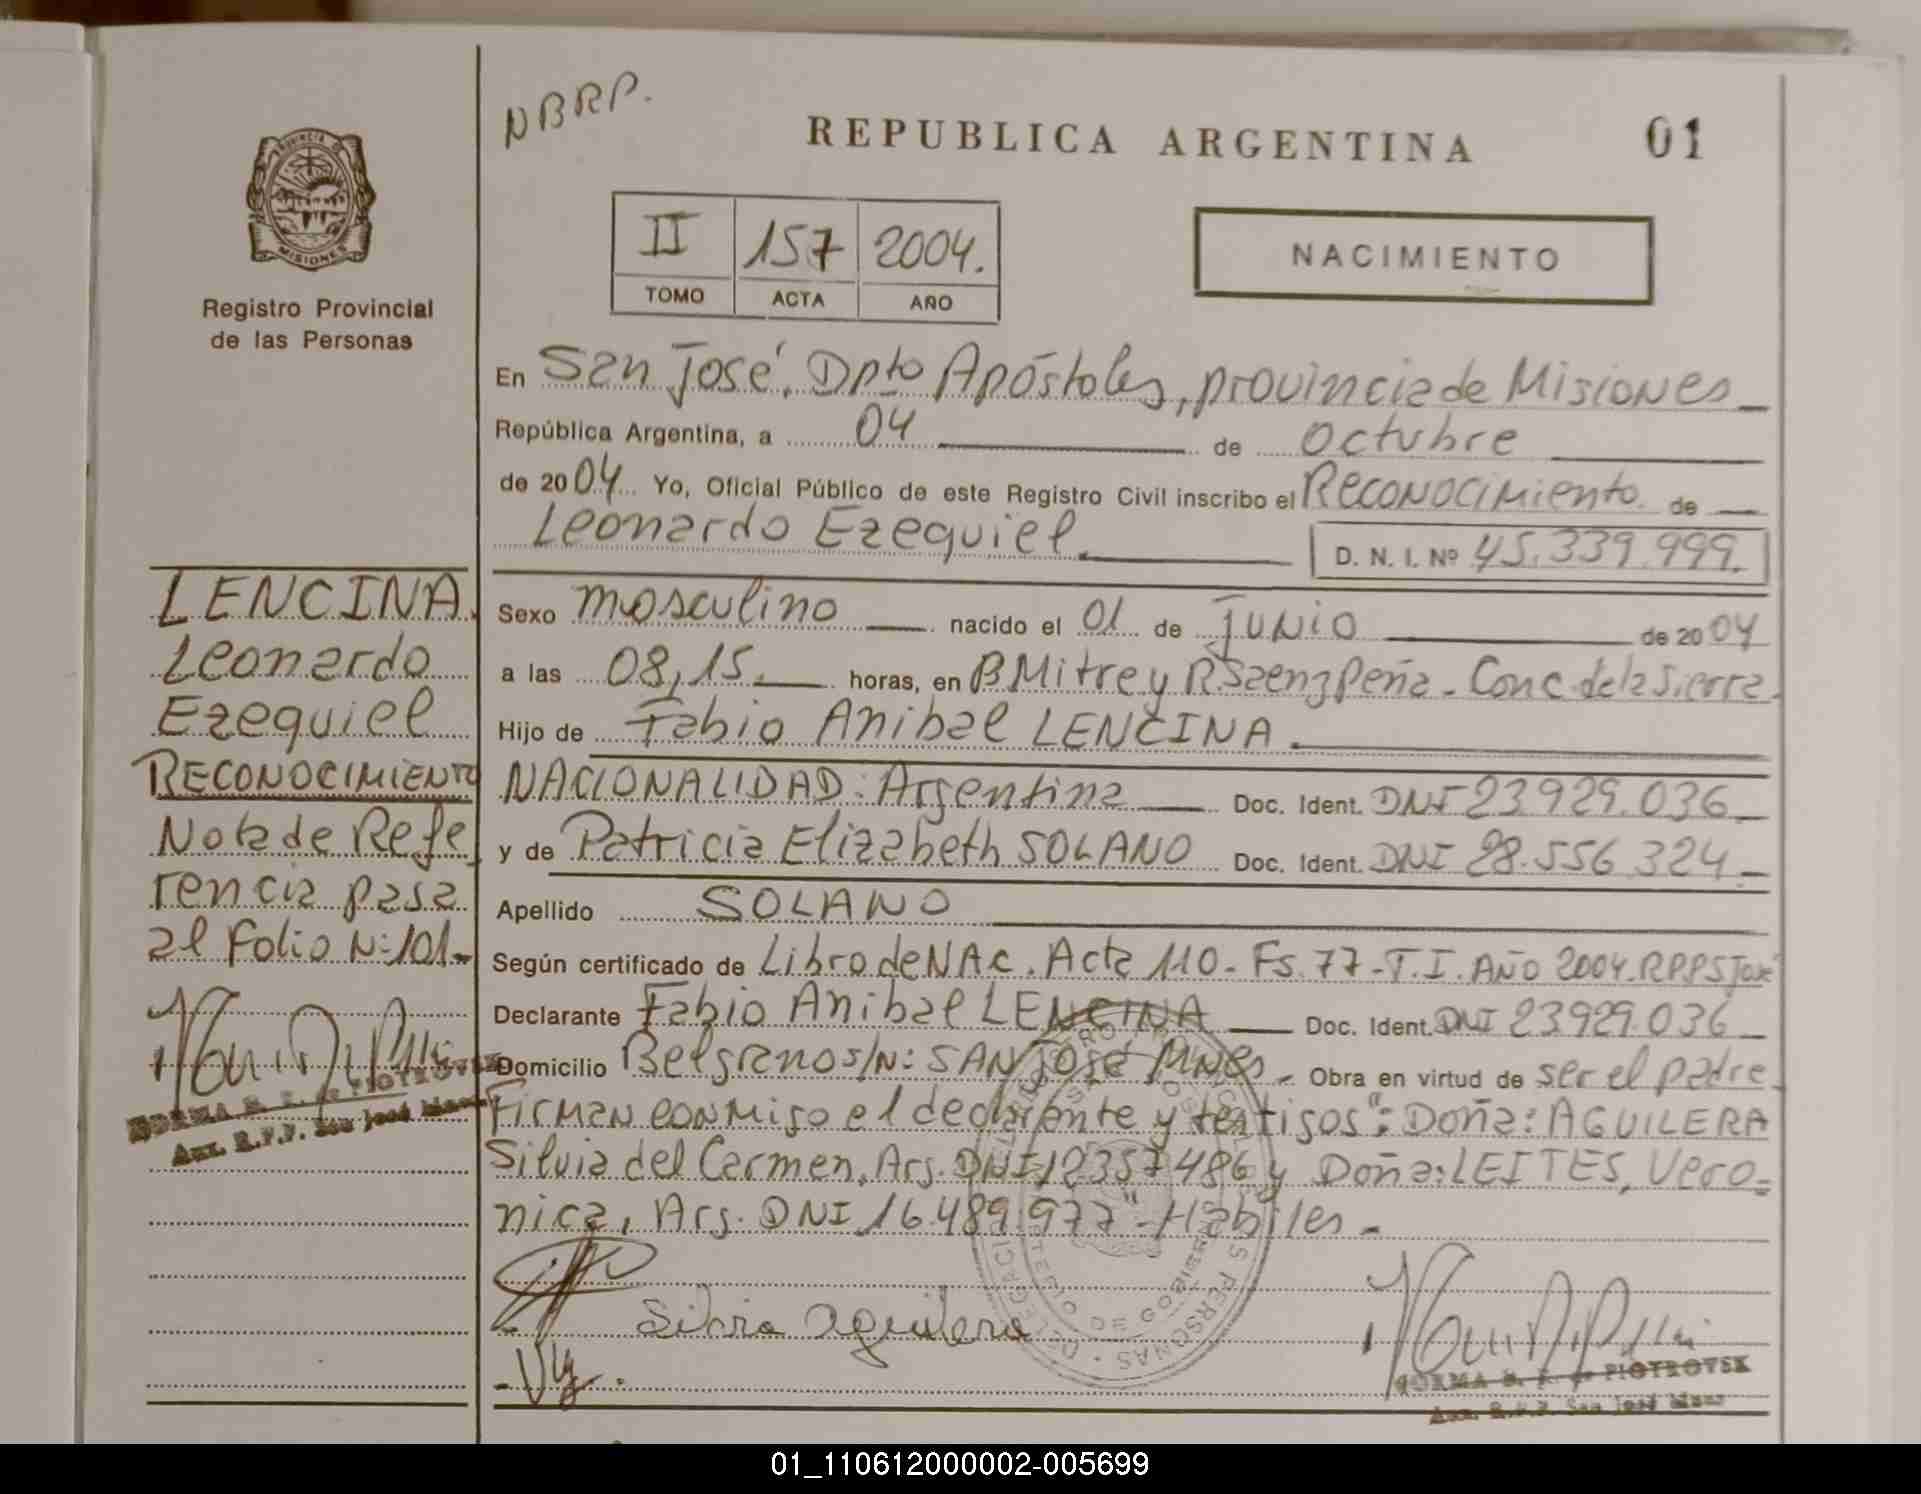 NBRP.
REPUBLICA ARGENTINA
01
PROVINCIA DE
MISIONES
Registro Provincial
de las Personas
II 157 2004.
TOMO ACTA AÑO
NACIMIENTO
En San José, Dpto Apóstoles, provincia de Misiones
República Argentina, a 04 de Octubre
de 2004 Yo, Oficial Público de este Registro Civil inscribo el Reconocimiento de
Leonardo Ezequiel
D. N. I. Nº 45.339.999.
Sexo masculino nacido el 01 de Junio de 2004
a las 08,15 horas, en B Mitre y R. Saenz Peña - Conc. de la Sierra.
Hijo de Fabio Anibal LENCINA.
NACIONALIDAD: Argentina Doc. Ident. DNI 23.929.036
y de Patricia Elizabeth SOLANO Doc. Ident. DNI 28.556.324
Apellido SOLANO
Según certificado de Libro de NAc. Acta 110 - Fs. 77 - T. I. Año 2004. RPPS José
Declarante Fabio Anibal LENCINA Doc. Ident. DNI 23929.036
Domicilio Belgrano s/N: SAN José Mnes. Obra en virtud de ser el padre
Firman conmigo el declarante y testigos": Doña: AGUILERA
Silvia del Carmen, Arg. DNI 12357486 y Doña: LEITES, Vero-
nica, Arg. DNI 16.489.977 - Hábiles -
Silvia aguilera
LENCINA.
Leonardo
Ezequiel
RECONOCIMIENTO
Nota de Refe
rencia pasa
al Folio N: 101.-
NORMA B. F. de PIOTROVSK
Aux. R.P.P. San José Mnes
NORMA B. F. de PIOTROVSK
Aux. R.P.P. San José Mnes
01_110612000002-005699